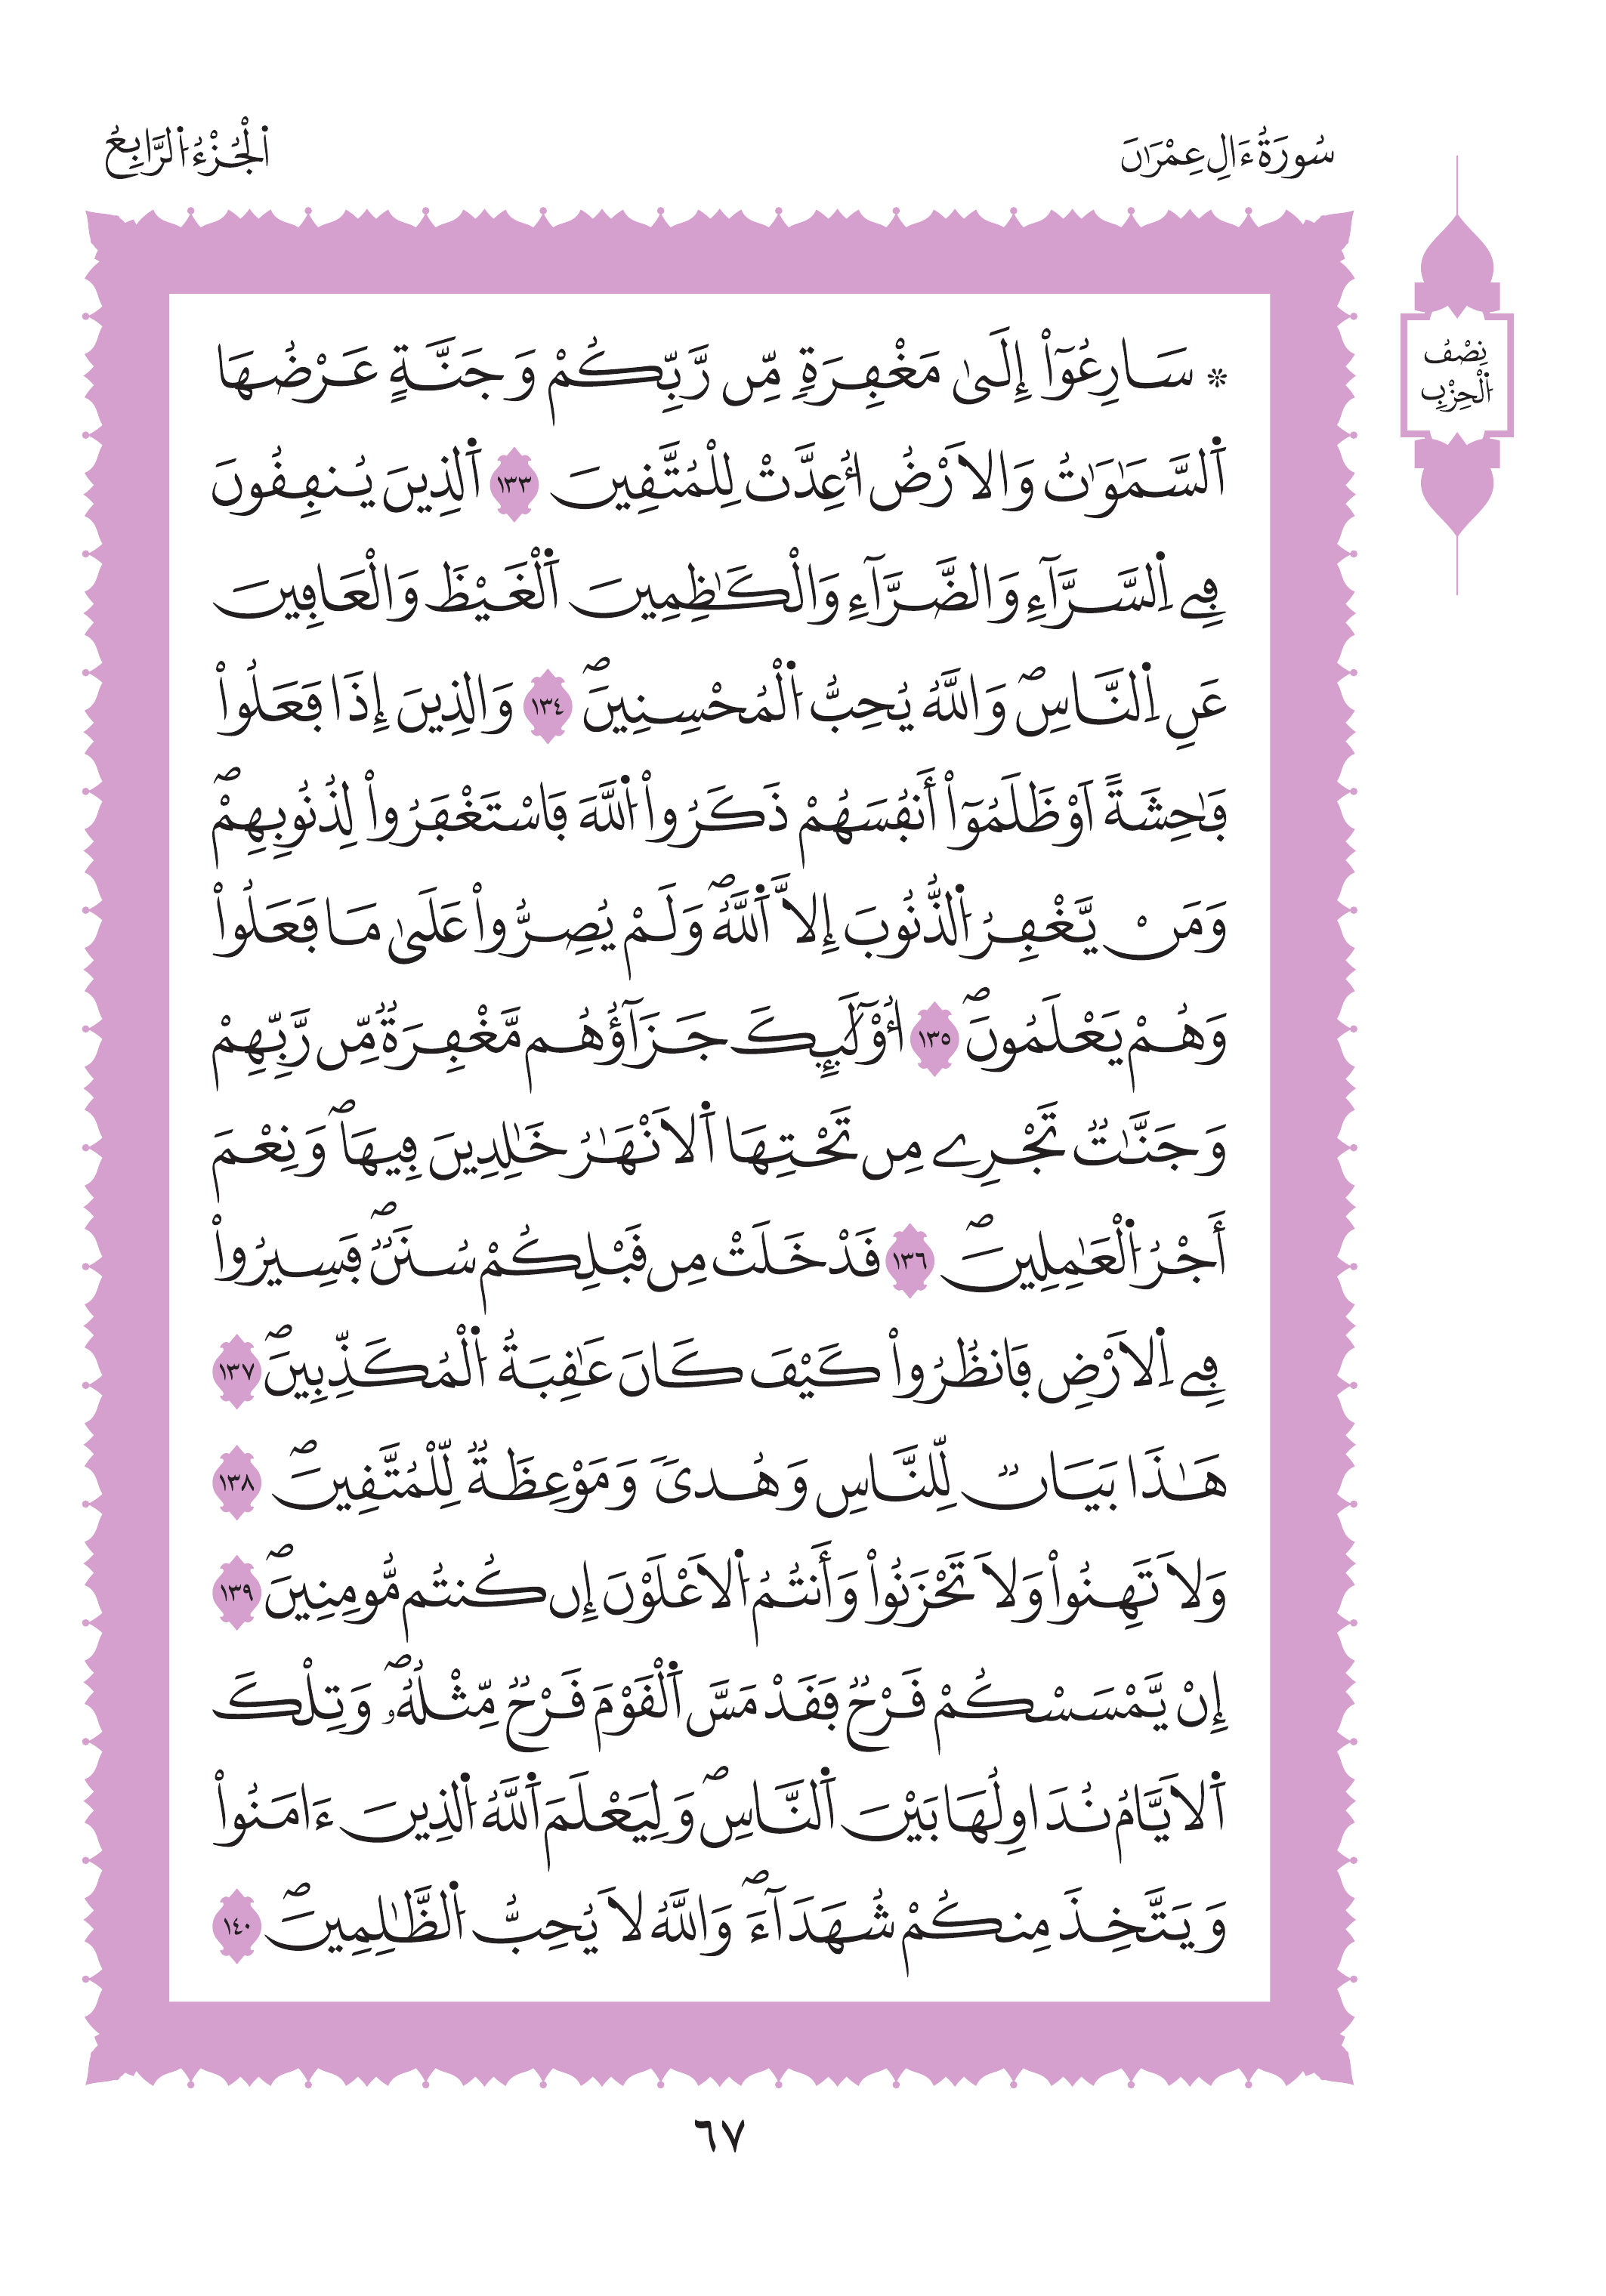 سُورَةُ ءَالِ عِمْرَانَ
اَلْجُزْءُ اَلرَّابِعُ
نِصْفُ
اَلْحِزْبِ
* سَارِعُوٓاْ إِلَىٰ مَغْفِرَةٖ مِّن رَّبِّكُمْ وَجَنَّةٍ عَرْضُهَا
اَ۬لسَّمَٰوَٰتُ وَالَارْضُ أُعِدَّتْ لِلْمُتَّقِينَ ١٣٣ اَ۬لذِينَ يُنفِقُونَ
فِے اِ۬لسَّرَّآءِ وَالضَّرَّآءِ وَالْكَٰظِمِينَ اَ۬لْغَيْظَ وَالْعَافِينَ
عَنِ اِ۬لنَّاسِۖ وَاللَّهُ يُحِبُّ اُ۬لْمُحْسِنِينَۖ ١٣٤ وَالذِينَ إِذَا فَعَلُواْ
فَٰحِشَةً اَوْ ظَلَمُوٓاْ أَنفُسَهُمْ ذَكَرُواْ اُ۬للَّهَ فَاسْتَغْفَرُواْ لِذُنُوبِهِمْۖ
وَمَنْ يَّغْفِرُ اُ۬لذُّنُوبَ إِلَّا اَ۬للَّهُۖ وَلَمْ يُصِرُّواْ عَلَىٰ مَا فَعَلُواْ
وَهُمْ يَعْلَمُونَۖ ١٣٥ أُوْلَٰٓئِكَ جَزَآؤُهُم مَّغْفِرَةٞ مِّن رَّبِّهِمْ
وَجَنَّٰتٞ تَجْرِے مِن تَحْتِهَا اَ۬لَانْهَٰرُ خَٰلِدِينَ فِيهَاۖ وَنِعْمَ
أَجْرُ اُ۬لْعَٰمِلِينَۖ ١٣٦ قَدْ خَلَتْ مِن قَبْلِكُمْ سُنَنٞۖ فَسِيرُواْ
فِے اِ۬لَارْضِ فَانظُرُواْ كَيْفَ كَانَ عَٰقِبَةُ اُ۬لْمُكَذِّبِينَۖ ١٣٧
هَٰذَا بَيَانٞ لِّلنَّاسِ وَهُدىٗ وَمَوْعِظَةٞ لِّلْمُتَّقِينَۖ ١٣٨
وَلَا تَهِنُواْ وَلَا تَحْزَنُواْ وَأَنتُمُ اُ۬لَاعْلَوْنَ إِن كُنتُم مُّومِنِينَۖ ١٣٩
إِنْ يَّمْسَسْكُمْ قَرْحٞ فَقَدْ مَسَّ اَ۬لْقَوْمَ قَرْحٞ مِّثْلُهُۥۖ وَتِلْكَ
اَ۬لَايَّامُ نُدَاوِلُهَا بَيْنَ اَ۬لنَّاسِۖ وَلِيَعْلَمَ اَ۬للَّهُ اُ۬لذِينَ ءَامَنُواْ
وَيَتَّخِذَ مِنكُمْ شُهَدَآءَۖ وَاللَّهُ لَا يُحِبُّ اُ۬لظَّٰلِمِينَۖ ١٤٠
٦٧